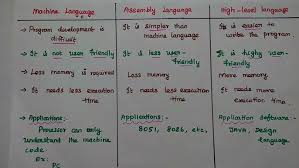 Machine Language
Assembly Language
High-level language
→ Program development is difficult
It is simpler than machine language
It is easier to write the program
→ It is not user friendly
It is less user-friendly
It is highly user-friendly
→ Less memory is required
Less memory
More memory
→ It needs less execution time
It needs less execution time
It needs more execution time
→ Applications:
Processor can only understand the machine code.
Ex: PC
Applications:
8051, 8086, etc.,
Application software:
JAVA, Design language